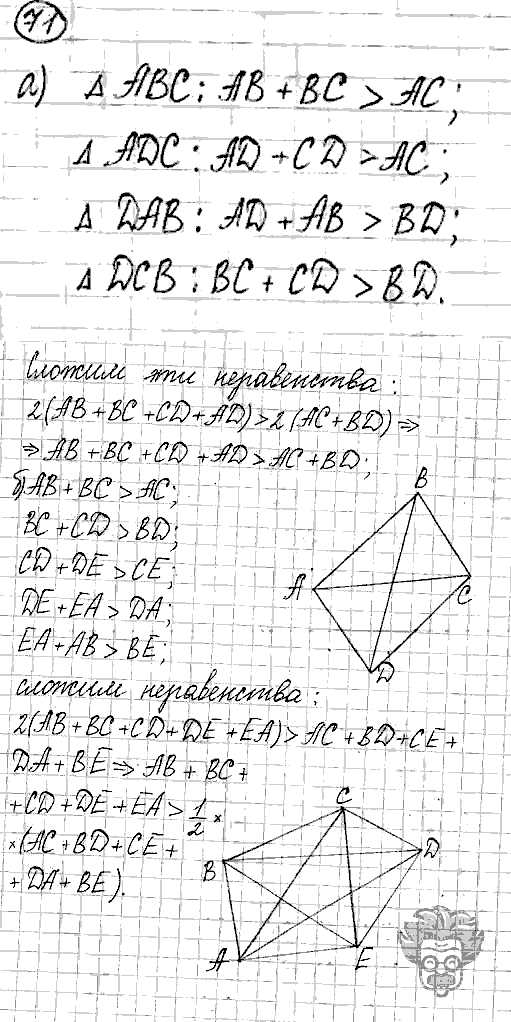 71
а) Δ ABC: AB + BC > AC;
Δ ADC: AD + CD > AC;
Δ DAB: AD + AB > BD;
Δ DCB: BC + CD > BD.
Сложим эти неравенства:
2(AB + BC + CD + AD) > 2(AC + BD) ⇒
⇒ AB + BC + CD + AD > AC + BD;
б) AB + BC > AC;
BC + CD > BD;
CD + DE > CE;
DE + EA > DA;
EA + AB > BE;
B
A
C
D
сложим неравенства:
2(AB + BC + CD + DE + EA) > AC + BD + CE +
DA + BE ⇒ AB + BC +
+ CD + DE + EA > 1/2 ×
× (AC + BD + CE +
+ DA + BE).
C
B
D
A
E